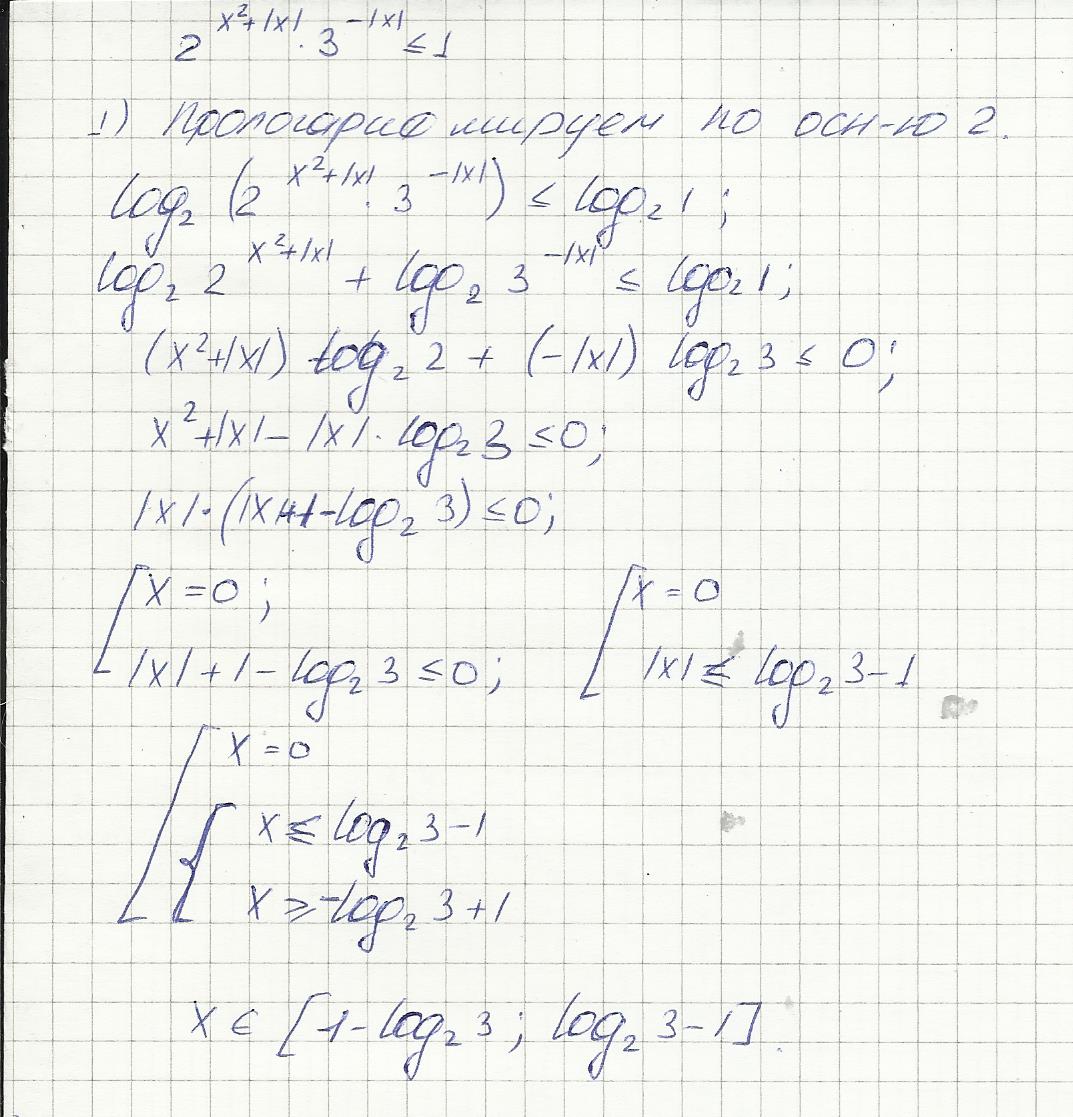 2^(x²+|x|) · 3^(-|x|) ≤ 1
1) Прологарифмируем по осн-ю 2.
log₂ (2^(x²+|x|) · 3^(-|x|)) ≤ log₂ 1 ;
log₂ 2^(x²+|x|) + log₂ 3^(-|x|) ≤ log₂ 1;
(x²+|x|) log₂ 2 + (-|x|) log₂ 3 ≤ 0;
x²+|x| - |x| · log₂ 3 ≤ 0;
|x| · (|x|+1 - log₂ 3) ≤ 0;
[ x = 0 ; [ x = 0
|x| + 1 - log₂ 3 ≤ 0; |x| ≤ log₂ 3 - 1
[ x = 0
{ x ≤ log₂ 3 - 1
x ≥ -log₂ 3 + 1
x ∈ [1 - log₂ 3 ; log₂ 3 - 1].